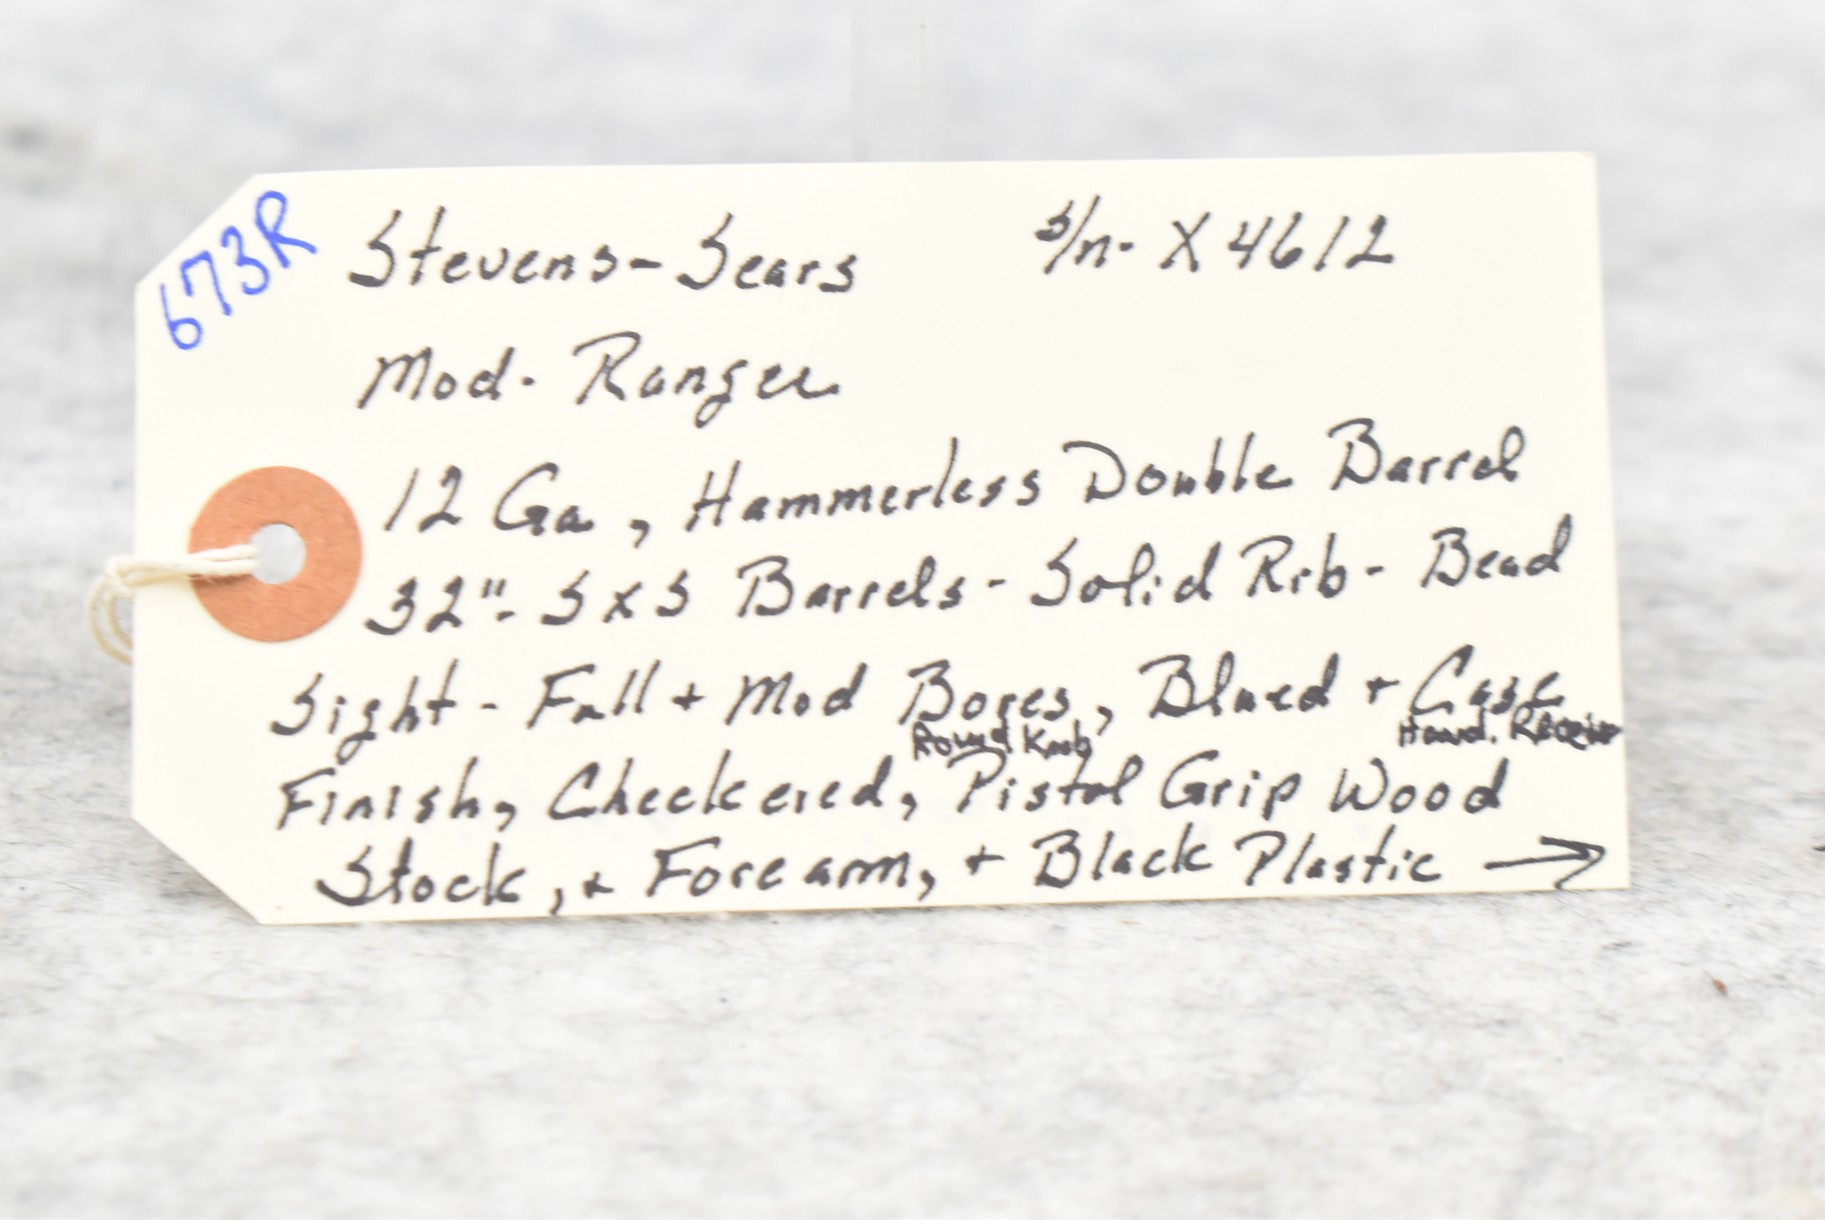 673R
Stevens-Sears s/n- X4612
Mod- Ranger
12 Ga, Hammerless Double Barrel
32"- S x S Barrels - Solid Rib - Bead
Sight - Full + Mod Bores, Blued + Case
Round Knob Hard. Receiver
Finish, Checkered, Pistol Grip Wood
Stock, + Forearm, + Black Plastic →